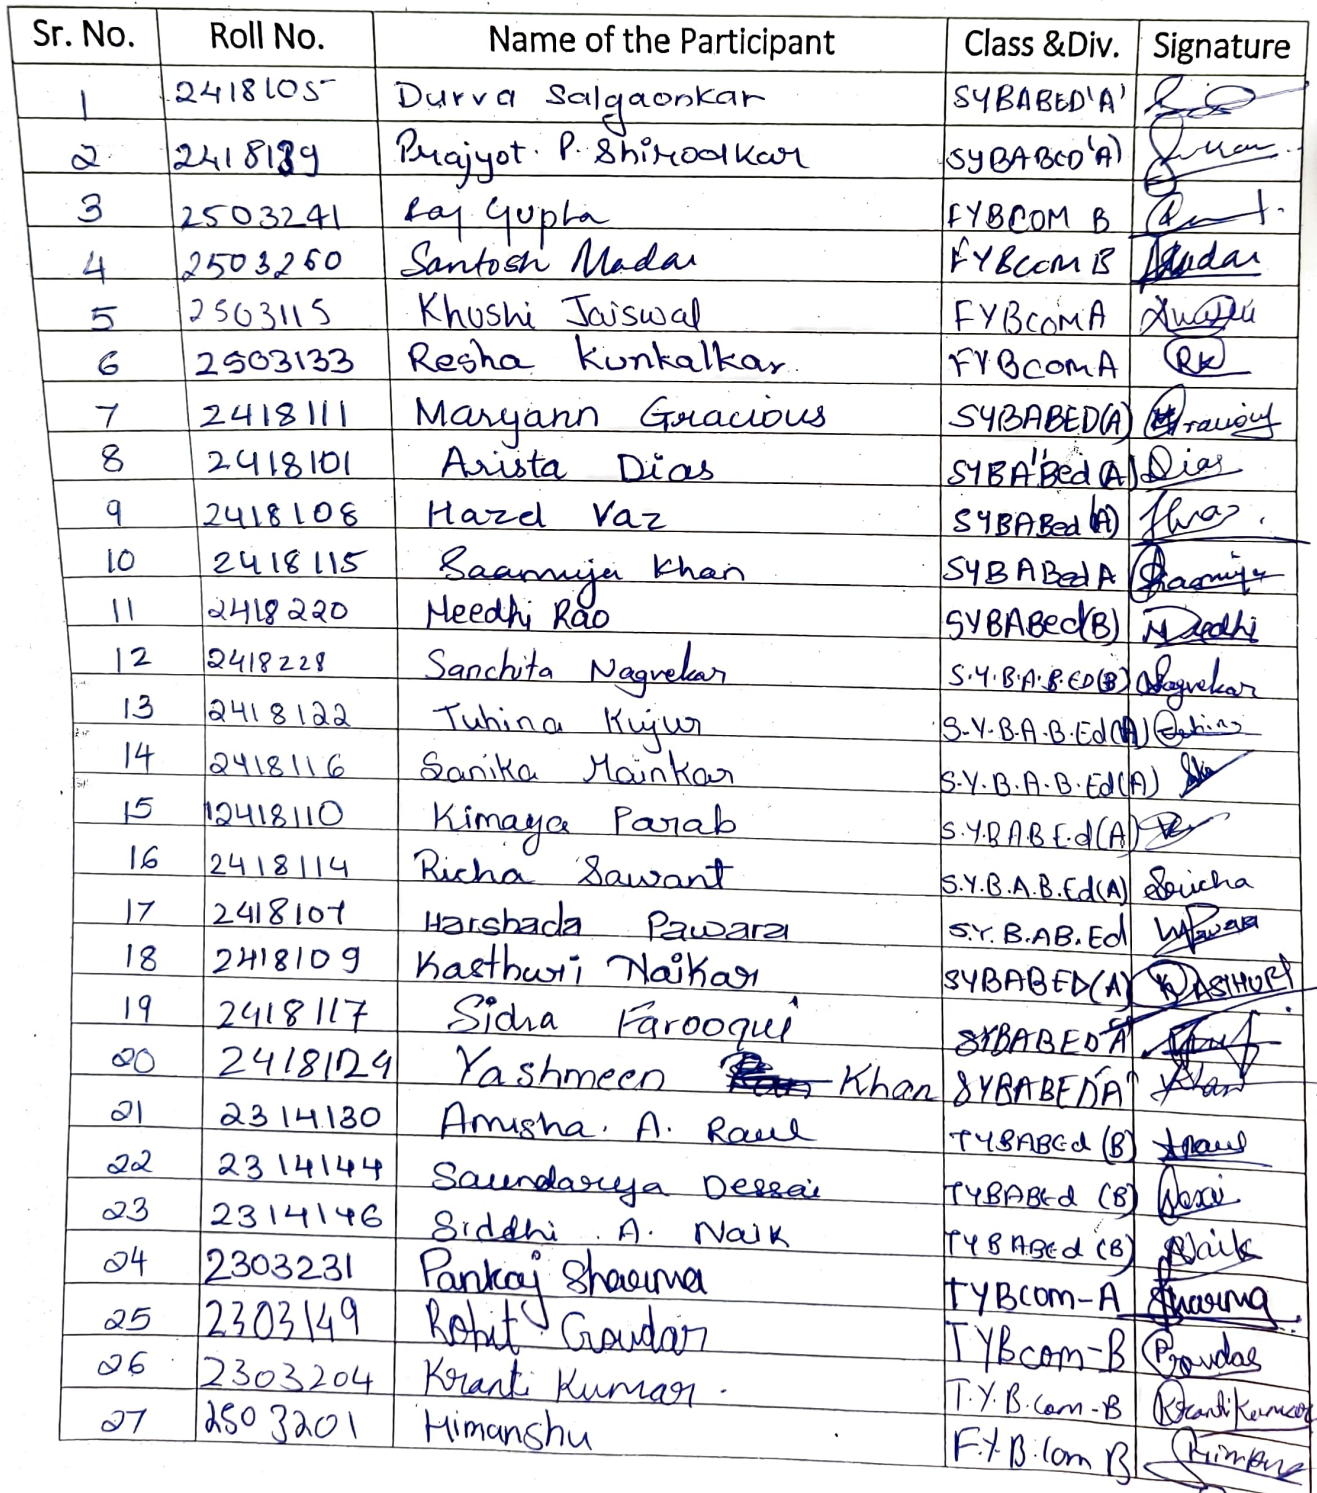 Sr. No. Roll No. Name of the Participant Class &Div. Signature
1 2418105 Durva Salgaonkar SYBABED'A'
2 2418139 Prajyot. P. Shirodkar SYBABED'A'
3 2503241 Raj Gupta FYBCOM B
4 2503260 Santosh Madar FYBCOM B Madar
5 2503115 Khushi Jaiswal FYBCOMA
6 2503133 Resha Kunkalkar. FYBCOMA RK
7 2418111 Maryann Gracious SYBABED(A) Gracious
8 2418101 Arista Dias SYBA"Bed (A) Dias
9 2418108 Hazel Vaz SYBABed (A) Hvaz.
10 2418115 Saamiya Khan SYBABed A Saamiya
11 2418220 Needhi Rao SYBABed(B) Needhi
12 2418228 Sanchita Nagvekar S.Y.B.A.B.ED(B) Nagvekar
13 2418122 Tuhina Kujur S.Y.B.A.B.Ed(A) Tuhina
14 2418116 Sanika Mainkar S.Y.B.A.B.Ed(A)
15 2418110 Kimaya Parab S.Y.B.A.B E.d(A)
16 2418114 Richa Sawant S.Y.B.A.B.Ed(A) Richa
17 2418107 Harshada Pawara S.Y.B.AB.Ed
18 2418109 Kasthuri Naikar SYBABED(A) KASTHURI
19 2418117 Sidra Farooqui SYBABED"A"
20 2418124 Yashmeen Khan SYBABED"A" Khan
21 2314130 Amisha. A. Raul TYBABEd (B) Araul
22 2314144 Saundarya Dessai TYBABEd (B) Desai
23 2314146 Siddhi. A. Naik TYBABEd (B) Naik
24 2303231 Pankaj Sharma TYBcom-A Sharma
25 2303149 Rohit Goudar TYBcom-B Goudar
26 2303204 Kranti Kumar. T.Y.B.com-B Krantikumar
27 2503201 Himanshu F.Y.B.Com B